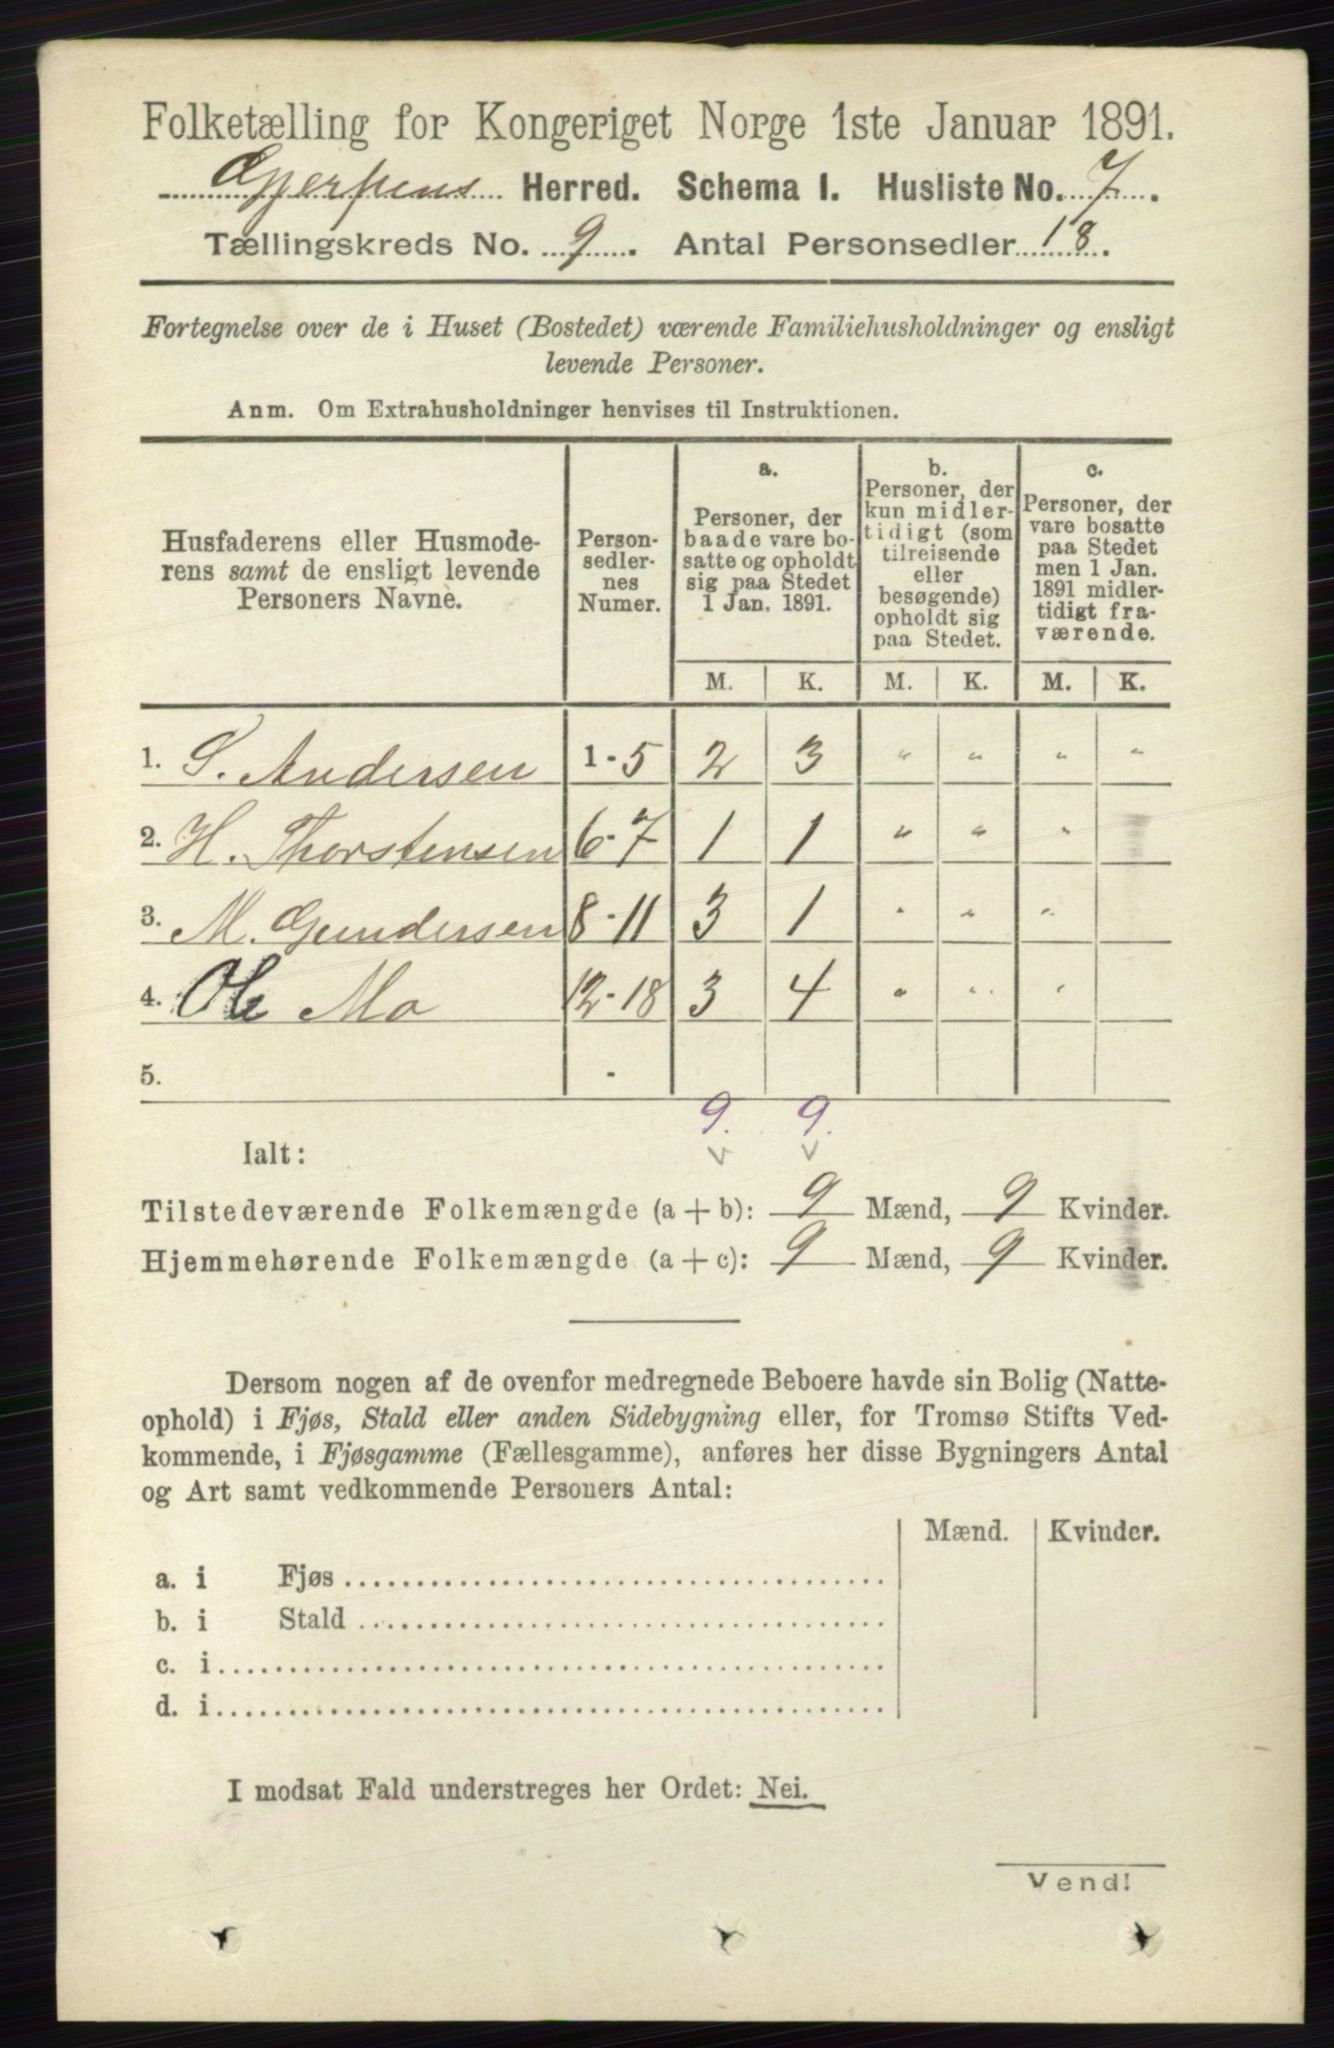 Folketælling for Kongeriget Norge 1ste Januar 1891.
Gjerpens Herred. Schema 1. Husliste No. 7.
Tællingskreds No. 9. Antal Personsedler 18.
Fortegnelse over de i Huset (Bostedet) værende Familiehusholdninger og ensligt
levende Personer.
Anm. Om Extrahusholdninger henvises til Instruktionen.
Husfaderens eller Husmode-
rens samt de ensligt levende
Personers Navne.
Person-
sedler-
nes
Numer.
a.
Personer, der
baade vare bo-
satte og opholdt
sig paa Stedet
1 Jan. 1891.
b.
Personer, der
kun midler-
tidigt (som
tilreisende
eller
besøgende)
opholdt sig
paa Stedet.
c.
Personer, der
vare bosatte
paa Stedet
men 1 Jan.
1891 midler-
tidigt fra-
værende.
M. K. M. K. M. K.
1. S. Andersen 1-5 2 3 " " " "
2. H. Thorstensen 6-7 1 1 " " "
3. M. Gundersen 8-11 3 1 " " "
4. Ole Mo 12-18 3 4 " " "
5. -
9. 9.
Ialt:
Tilstedeværende Folkemængde (a + b): 9 Mænd, 9 Kvinder.
Hjemmehørende Folkemængde (a + c): 9 Mænd, 9 Kvinder.
Dersom nogen af de ovenfor medregnede Beboere havde sin Bolig (Natte-
ophold) i Fjøs, Stald eller anden Sidebygning eller, for Tromsø Stifts Ved-
kommende, i Fjøsgamme (Fællesgamme), anføres her disse Bygningers Antal
og Art samt vedkommende Personers Antal:
Mænd. Kvinder.
a. i Fjøs
b. i Stald
c. i
d. i
I modsat Fald understreges her Ordet: Nei.
Vend!